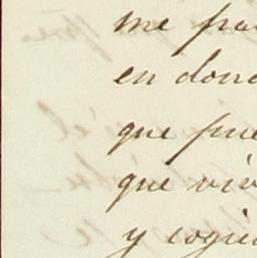 me fra
en dond
que fue
que viv
y cogie